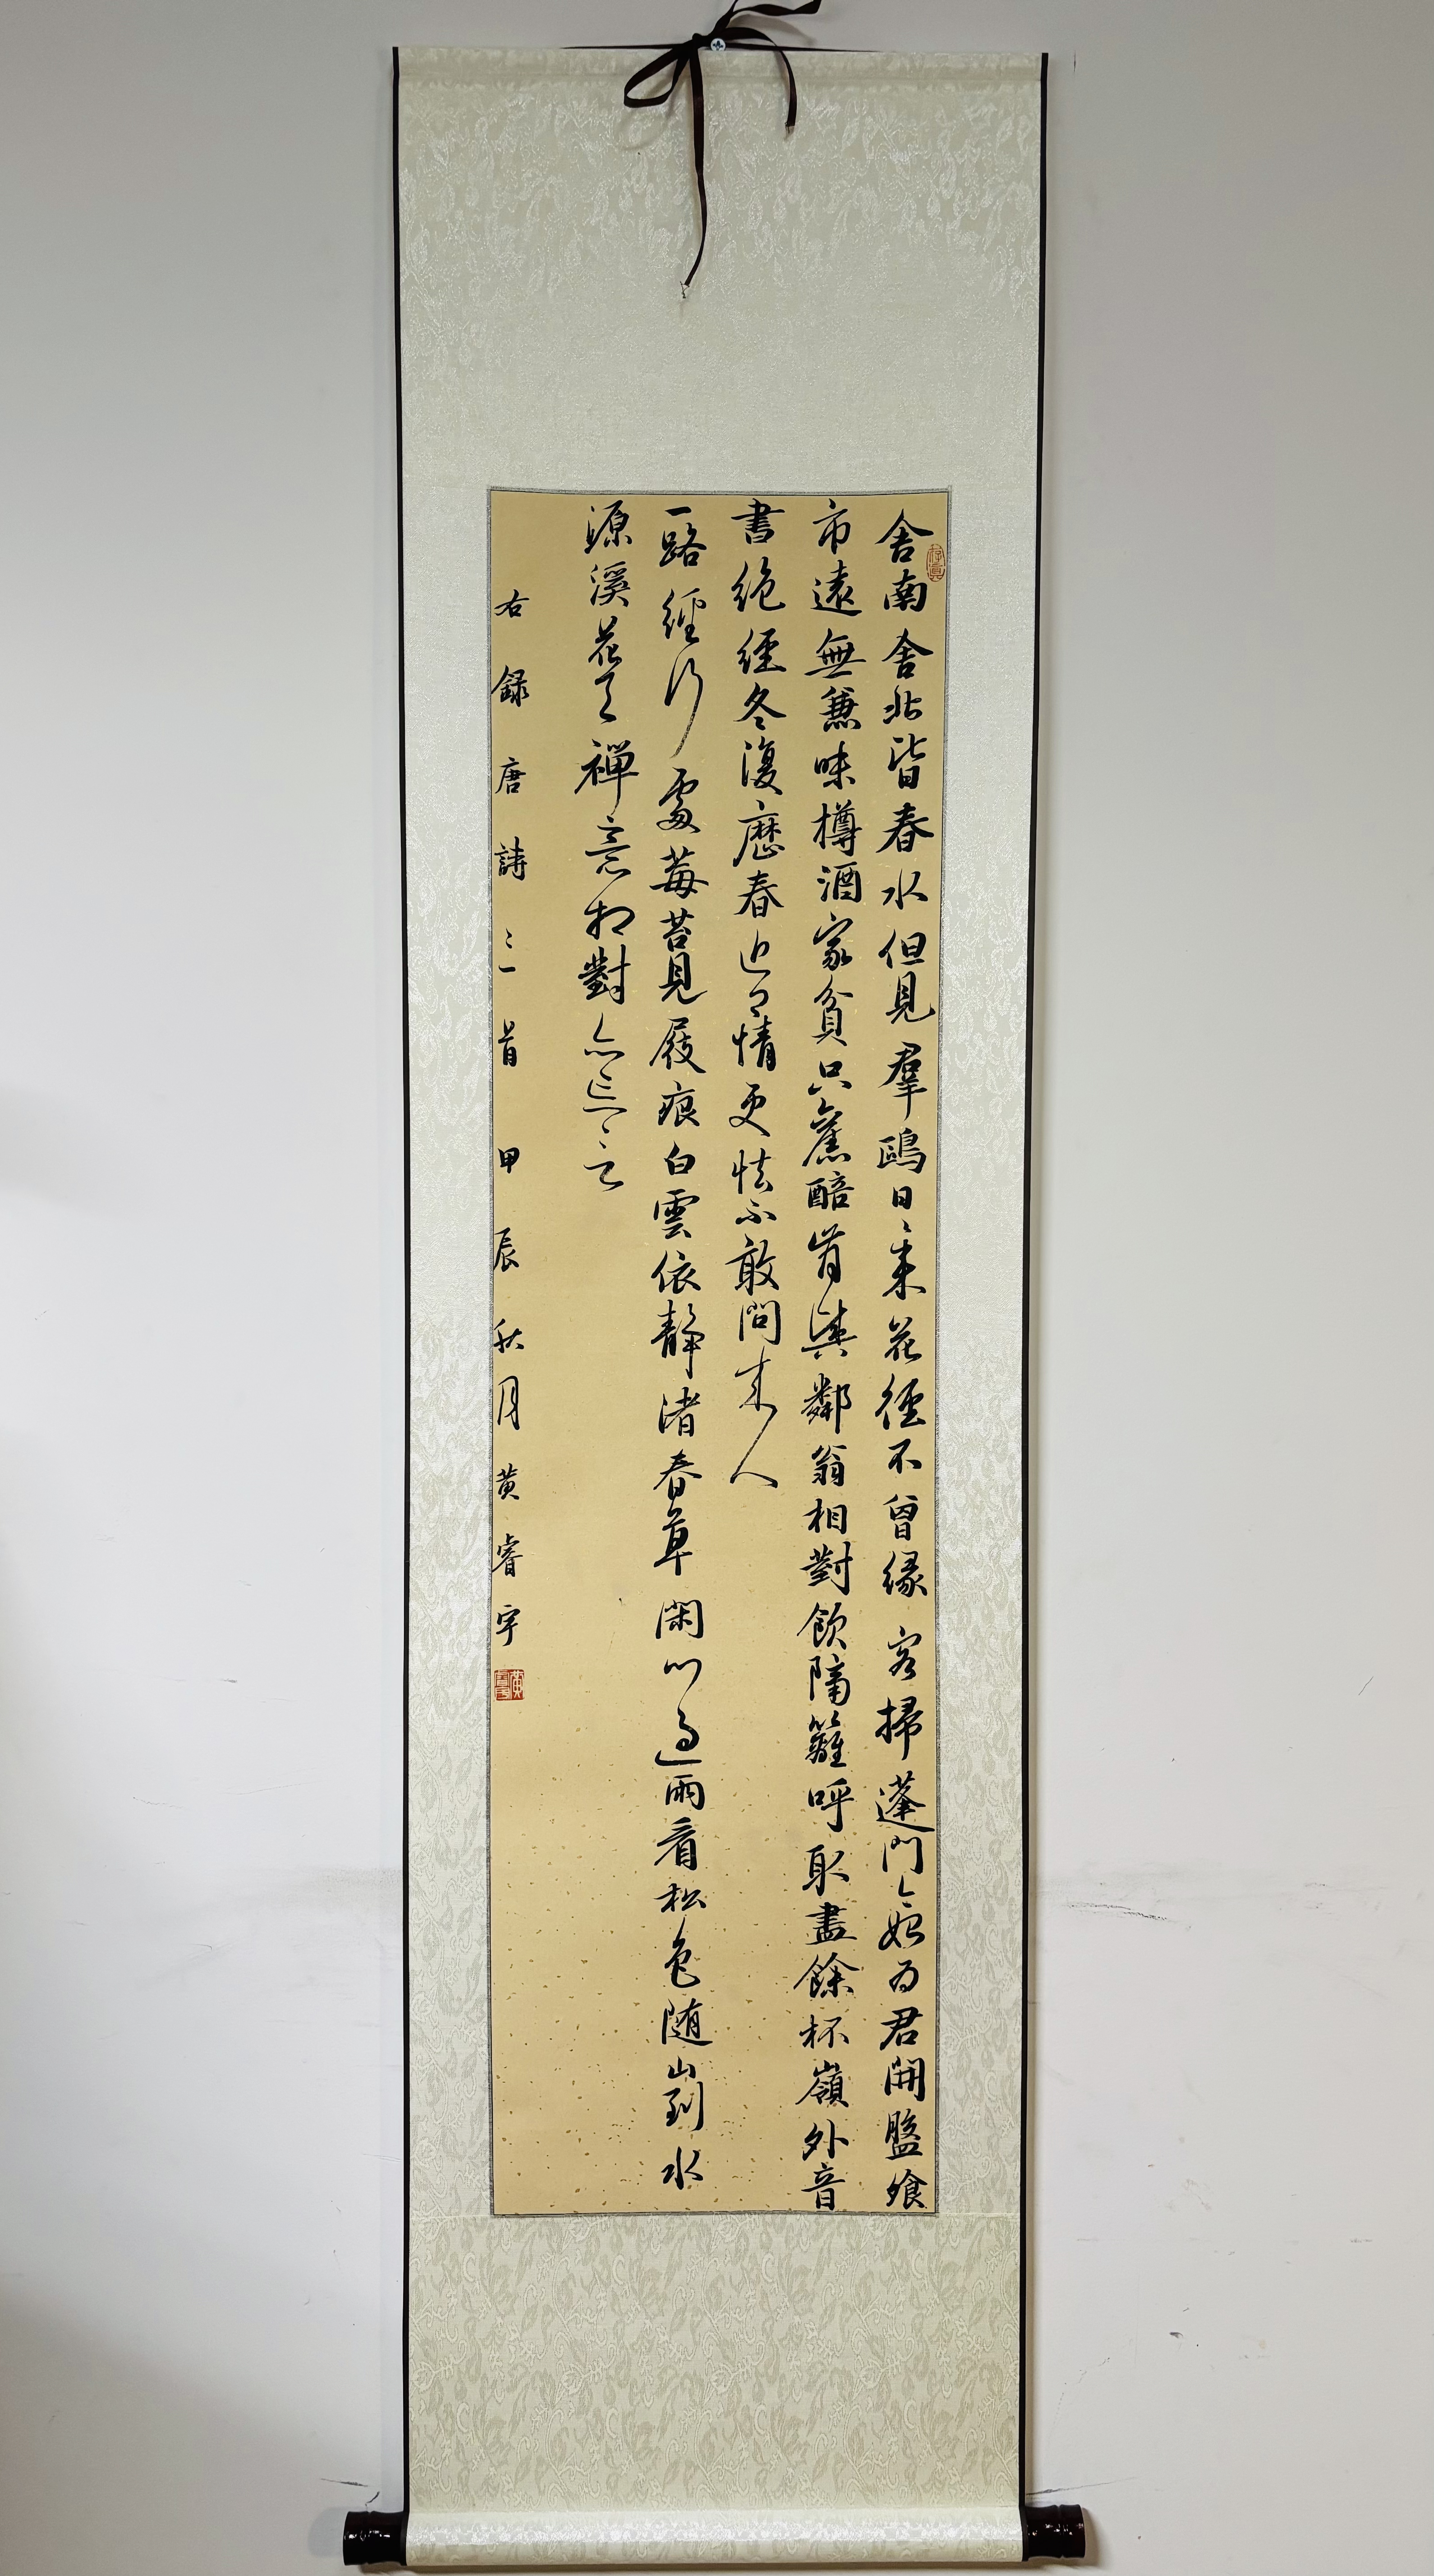 舍南舍北皆春水但見羣鷗日〻来花徑不曾緣客掃蓬門今始为君開盤飧
市遠無兼味樽酒家貧只舊醅肯與鄰翁相對飲隔籬呼取盡餘杯嶺外音
書絶經冬復歷春近鄉情更怯不敢問来人
一路經行處莓苔見屐痕白雲依静渚春草閑門過雨看松色随山到水
源溪花与禪意相對亦忘言
右録唐詩三首 甲辰秋月黄睿宇